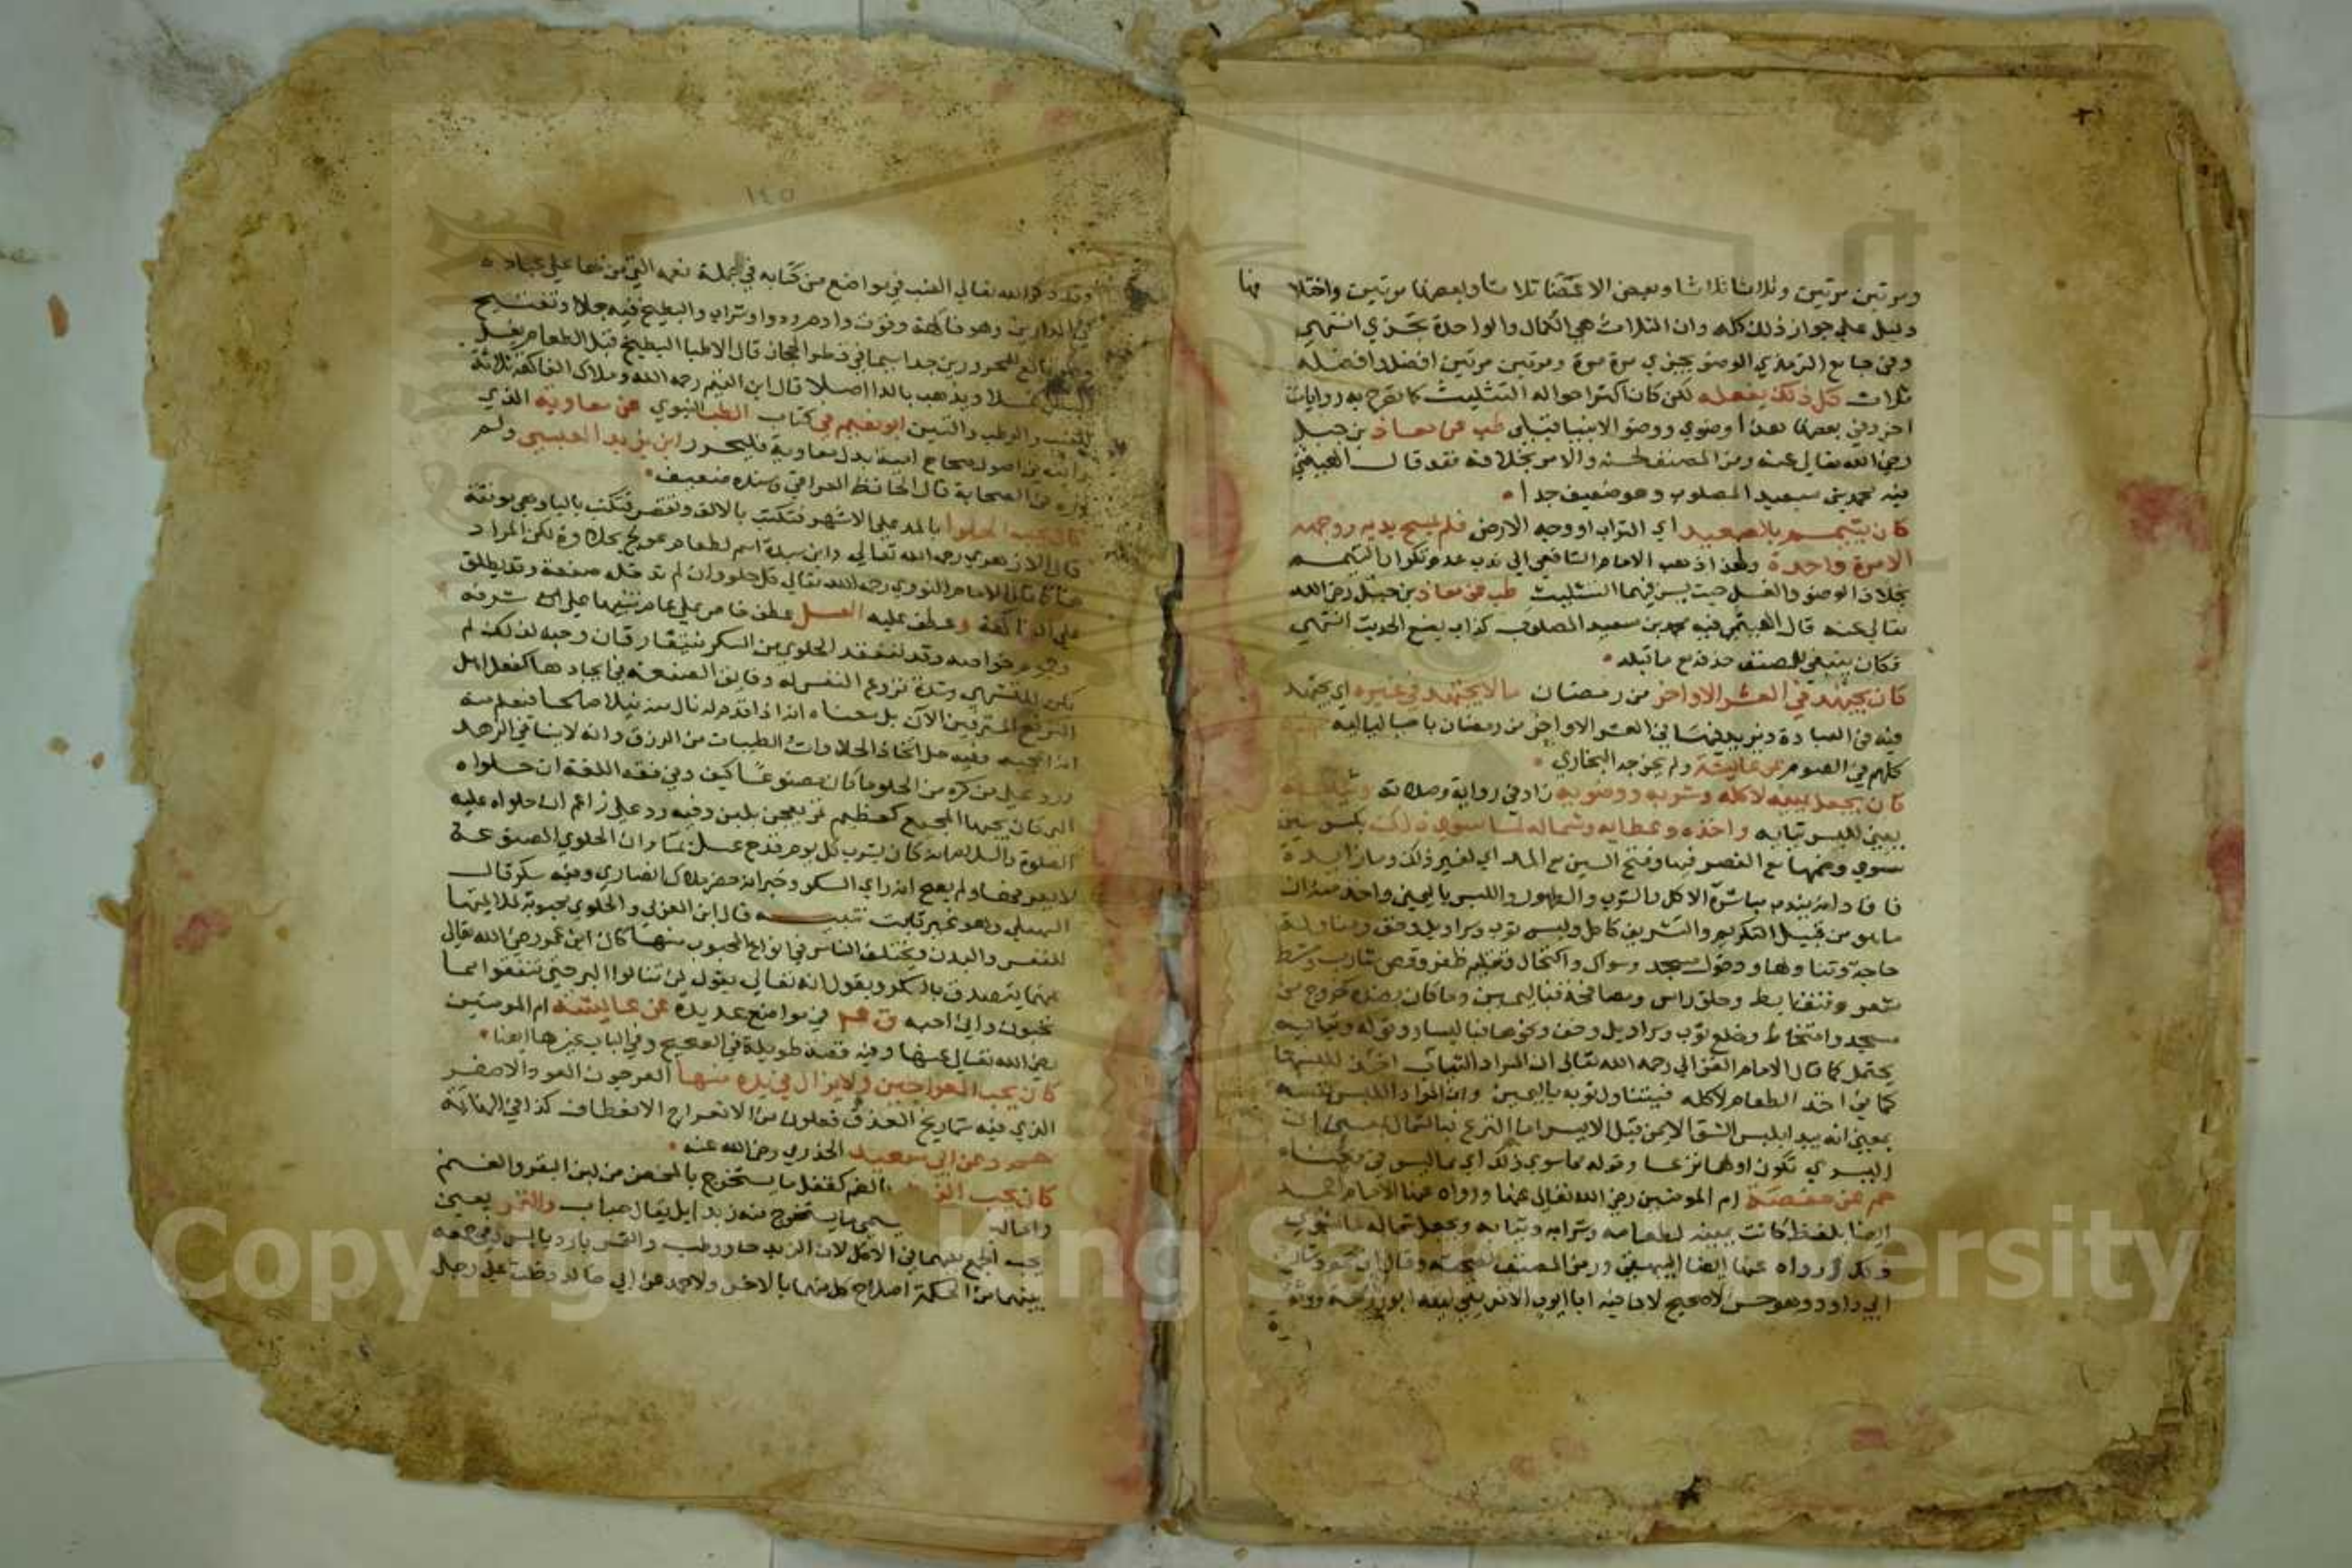 ومرتين مرتين وثلاثا ثلاثا وبعض الاعضا ثلاثا وبعضها مرتين واختلا
فها
دليل على جواز ذلك كله وان الثلاث هي الكمال والواحدة تجزي انتهى
وفي جامع الترمذي الوضو يجزي مرة مرة ومرتين مرتين افضل وافضله
ثلاث كل ذلك يفعله لكن كان اكثر احواله التثليث كما تصرح به روايات
اخر وفي بعضها هذا وضوي ووضو الانبيا قبلي طب عن معاذ بن جبل
رضي الله تعالى عنه ورمز المصنف لحسنه والامر بخلافه فقد قال الهيثمي
فيه محمد بن سعيد المصلوب وهو ضعيف جدا
كان يتيمم بالصعيد اي التراب او وجه الارض فلم يمسح يديه ووجهه
الا مرة واحدة ولهذا ذهب الامام الشافعي الى ندب عدم تكرار التيمم
بخلاف الوضو والغسل حيث يسن فيهما التثليث طب عن معاذ بن جبل رضي الله
تعالى عنه قال الهيثمي فيه محمد بن سعيد المصلوب كذاب يضع الحديث انتهى
فكان ينبغي للمصنف حذفه مع ما قبله
كان يجتهد في العشر الاواخر من رمضان ما لا يجتهد في غيره اي يجتهد
فيه في العبادة ويزيد فيها في العشر الاواخر من رمضان باحيا لياليه
كلهم في الصوم عن عايشة ولم يخرجه البخاري
كان يجعل يمينه لاكله وشربه ووضويه زاد في رواية وصلاته وثيابه
يعني للبس ثيابه واخذه وعطايه وشماله لما سوى ذلك بكسر سين
سوى وضمها مع القصر فيهما وفتح السين مع المد اي لغير ذلك وما زايدة
فافاد انه يندب مباشرة الاكل والشرب والطهور واللبس باليمين واخذ منه ان
ما هو من قبيل التكريم والتشريف كاكل ولبس ثوب وسراويل وخف ومناولة
حاجة وتناولها ودخول مسجد وسواك واكتحال وتقليم ظفر وقص شارب ومشط
شعر ونتف ابط وحلق راس ومصافحة فباليمين وما كان بضده كخروج من
مسجد وامتخاط وخلع ثوب وسراويل وخف ونحوها فباليسار وقوله وثيابه
يحتمل كما قال الامام العراقي رحمه الله تعالى ان المراد الثياب اخذ للبسها
كما في اخذ الطعام لاكله فيتناول ثوبه باليمين وان المراد اللبس نفسه
بمعنى انه يبدا بلبس الشق الايمن قبل الايسر اما النزع فبالشمال بمعنى ان
اليسرى تكون اولهما نزعا وقوله لما سوى ذلك اي مما ليس في معناه
حم عن حفصة ام المومنين رضي الله تعالى عنها ورواه عنها الامام احمد
ايضا بلفظ كانت يمينه لطعامه وشرابه وثيابه ويجعل شماله لما سوى
ذلك ورواه عنها ايضا البيهقي ورمز المصنف لصحته وقال
ابي داود وهو حسن لا صحيح لان فيه ابا ايوب الافريقي لينه ابو زرعة ووثقه
١٤٥
وقد ذكر الله تعالى العنب في مواضع من كتابه في جملة نعمه التي من بها على عباده
في الدارين وهو فاكهة وقوت وادم ودوا وشراب والبطيخ فيه جلا وتفتيح
وهو نافع للمحرورين جدا سيما في قطر الحجاز قال الاطبا البطيخ قبل الطعام يغسل
البطن غسلا ويذهب بالدا اصلا قال ابن القيم رحمه الله وملاك الفاكهة ثلاثة
العنب والرطب والتين ابو نعيم في كتاب الطب النبوي عن معاوية الذي
رايته في اصول صحاح امية بدل معاوية فليحرر ابن يزيد العبسي ولم
اره في الصحابة قال الحافظ العراقي وسنده ضعيف
كان يحب الحلوا بالمد على الاشهر فتكتب بالالف وتقصر فتكتب باليا وهي مونثة
قال الازهري رحمه الله تعالى وابن سيده اسم لطعام عولج بحلاوة لكن المراد
هنا كما قال الامام النووي رحمه الله تعالى كل حلو وان لم تدخله صنعة وقد يطلق
على الفاكهة وعطف عليه العسل عطف خاص على عام تنبيها على شرفه
وعموم خواصه وقد تنعقد الحلوى من السكر فيتقارقان وحبه لذلك لم
يكن للتشهي وشدة نزوع النفس له ودقايق الصنعة في ايجادها كفعل اهل
الترفه المترفين الآن بل معناه انه اذا قدم له نال منه نيلا صالحا فيعلم منه
انه اعجبه وفيه حل اتخاذ الحلاوات والطيبات من الرزق وانه لا ينافي الزهد
ورد على من كره من الحلو ما كان مصنوعا كيف وفي فقه اللغة ان حلواه
التي كان يحبها المجيع كعظيم تمر يعجن بلبن وفيه رد على زاعم ان حلواه عليه
الصلاة والسلام انه كان يشرب كل يوم قدح عسل بما وان الحلوى المصنوعة
لا يعرفها ولم يصح انه راى السكر وخبر انه حضر ملاك انصاري وفيه سكر قال
السهيلي وهو غير ثابت تنبيه قال ابن العربي والحلوى محبوبة لملايمتها
للنفس والبدن ويختلف الناس في انواع المحبوب منها كان ابن عمر رضي الله تعالى
عنهما يتصدق بالسكر ويقول انه تعالى يقول لن تنالوا البر حتى تنفقوا مما
تحبون واني احبه ق عم في مواضع عديدة عن عايشة ام المومنين
رضي الله تعالى عنها وفيه قصة طويلة في الصحيح وفي الباب غيرها ايضا
كان يحب العراجين ولا يزال في يده منها العرجون العود الاصفر
الذي فيه شماريخ العذق فعلون من الانعراج الانعطاف كذا في النهاية
حم د عن ابي سعيد الخدري رضي الله عنه
كان يحب الزبد بالضم كقفل ما يستخرج بالمخض من لبن البقر والغنم
واما لبن يسمى ما يستخرج منه زبدا بل يقال حباب والتمر يعني
يحب الجمع بينهما في الاكل لان الزبد حار ورطب والتمر بارد يابس وفي جمعه
بينهما من الحكمة اصلاح كل منهما بالاخر ولاحمد عن ابي خالد دخلت على رجل